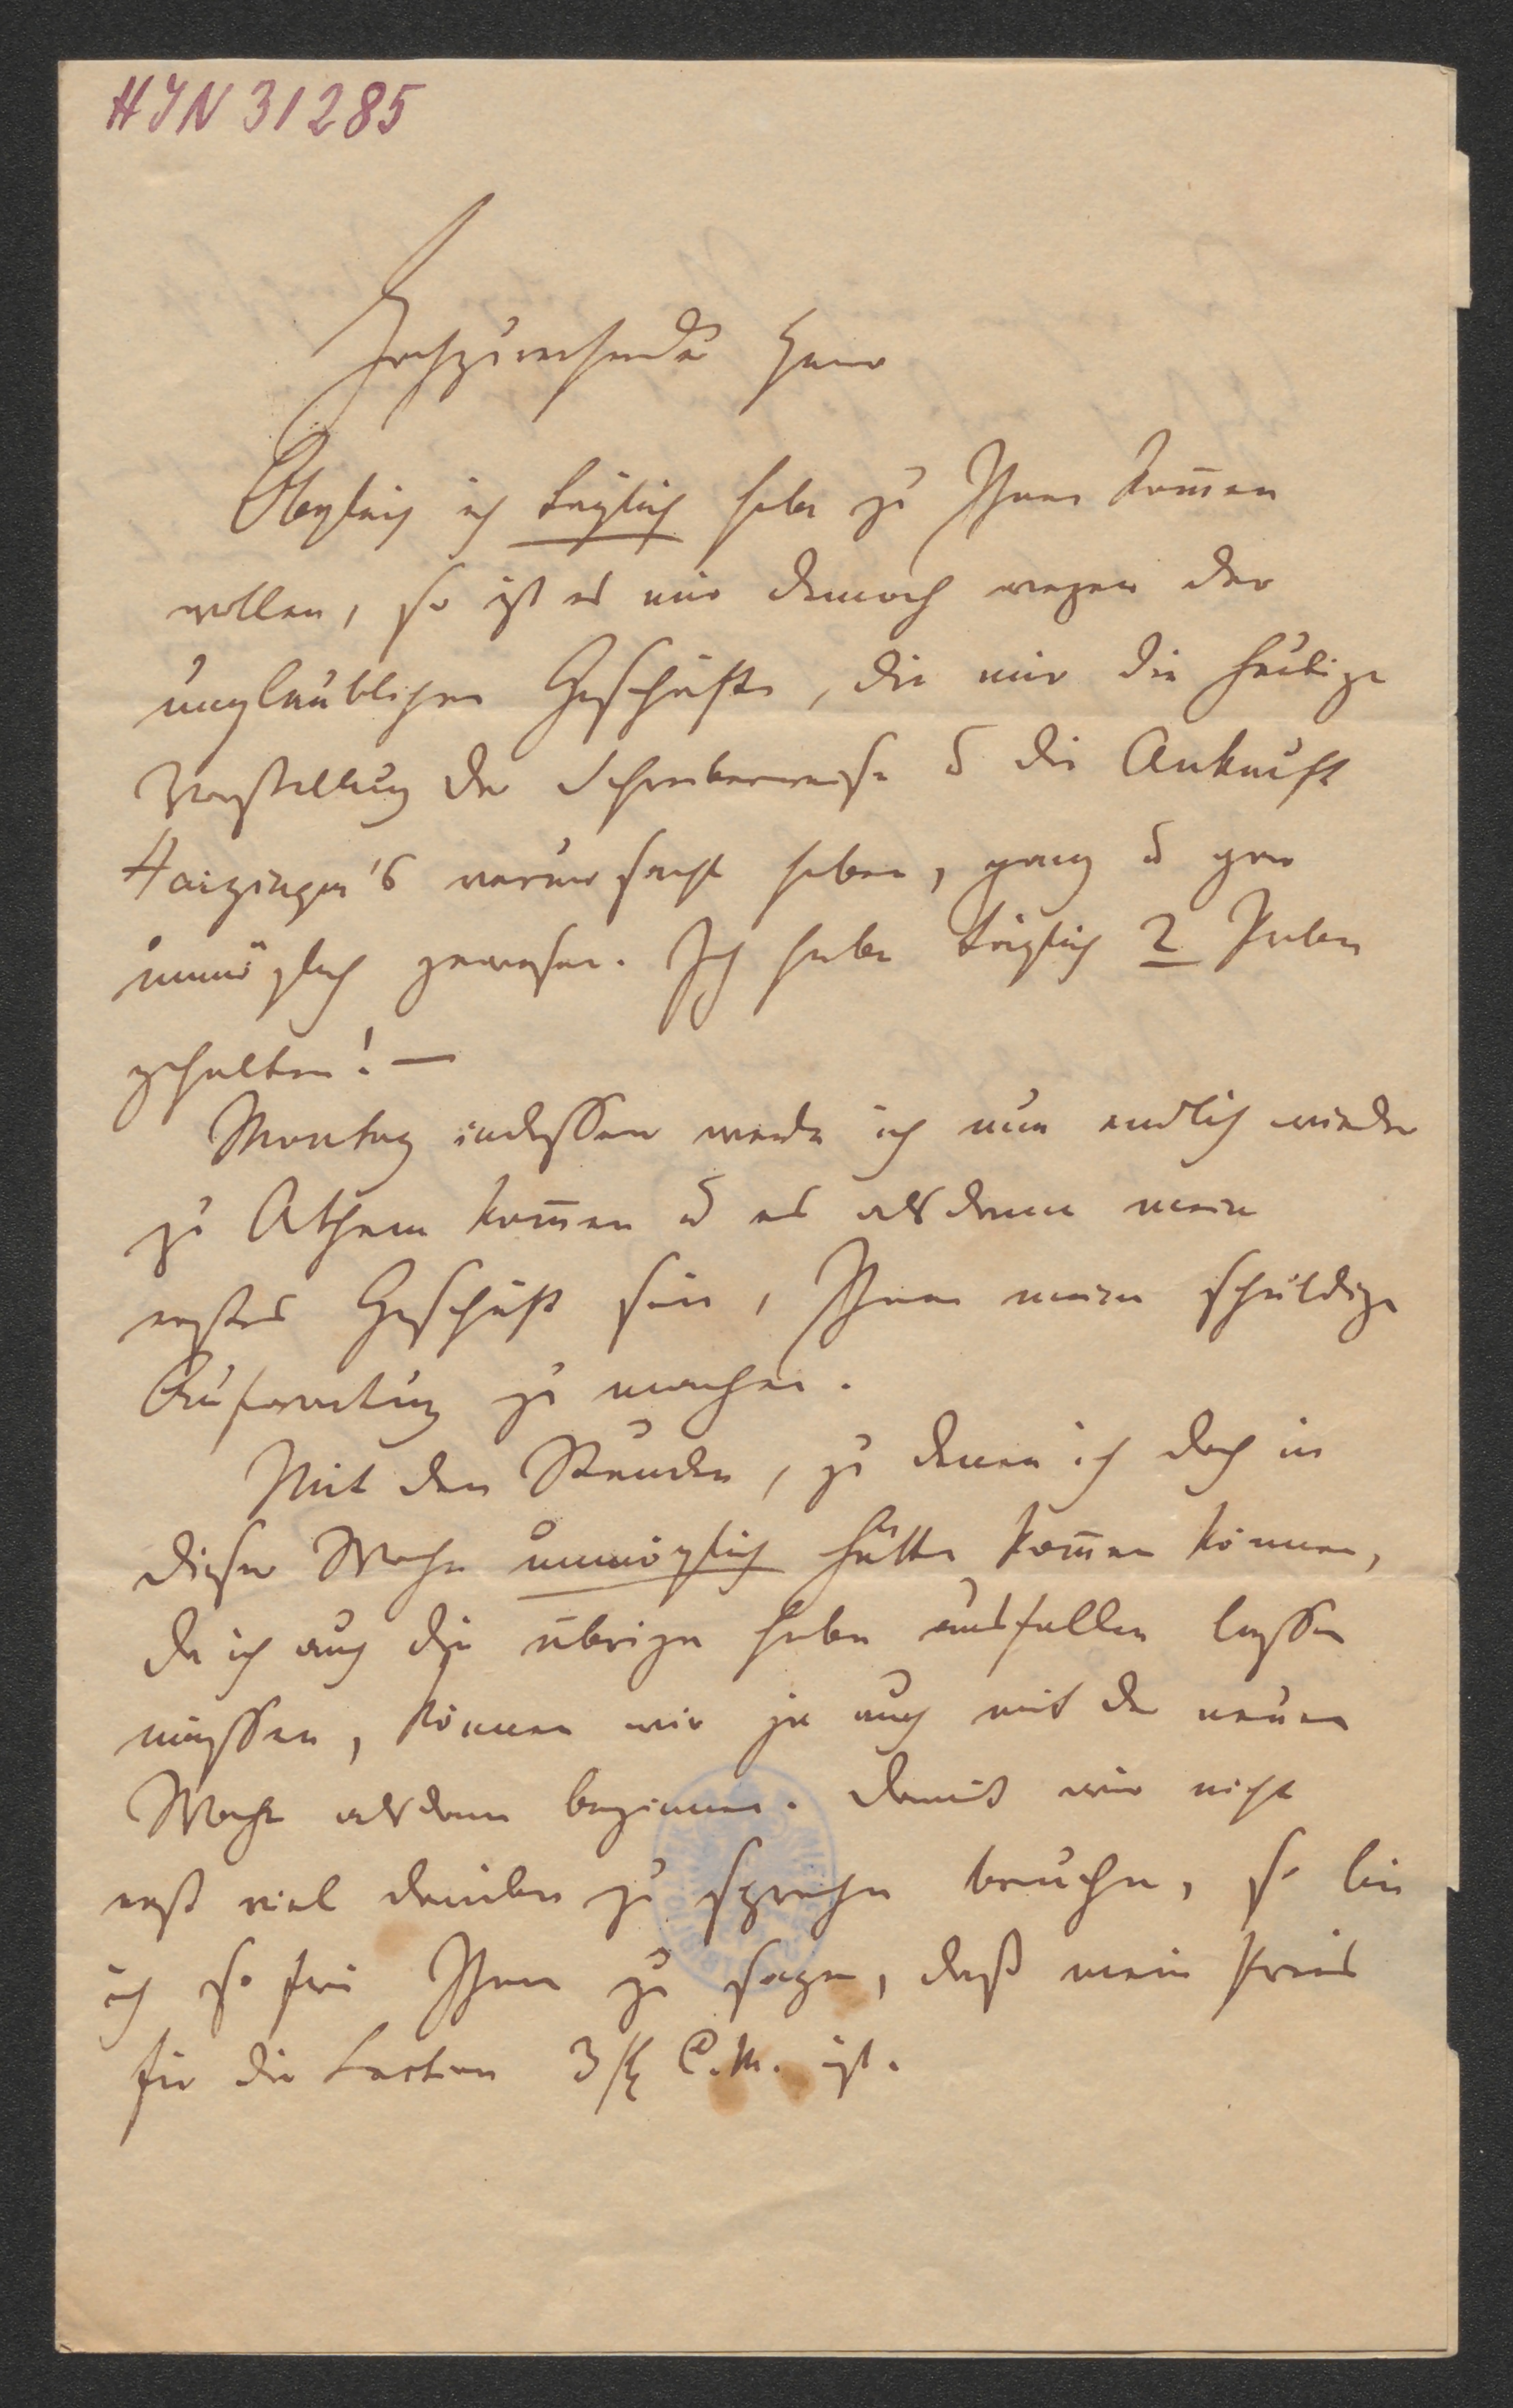 HIN 31285
Hochzuverehrender Herr
Obgleich ich täglich habe zu Ihnen kom̅en
wollen, so ist es mir dennoch wegen der
unglaublichen Geschäfte, die mir die heutige
Vorstellung der Schreiberwiese u die Ankunft
Haizinger's verursacht haben, ganz u gar
unmöglich gewesen. Ich habe täglich 2 Proben
gehalten! —
Montag indessen werde ich nun endlich wieder
zu Athem kom̅en u es alsdann mein
erstes Geschäft sein, Ihnen meine schuldige
Aufwartung zu machen.
Mit den Stunden, zu denen ich doch in
dieser Woche unmöglich hätte kom̅en können,
da ich auch die übrigen habe ausfallen lassen
müssen, können wir ja auch mit der neuen
Woche alsdann beginnen. Damit wir nicht
erst viel darüber zu sprechen brauchen, so bin
ich so frei Ihnen zu sagen, daß mein Preis
für die Lection 3 f C.M. ist.